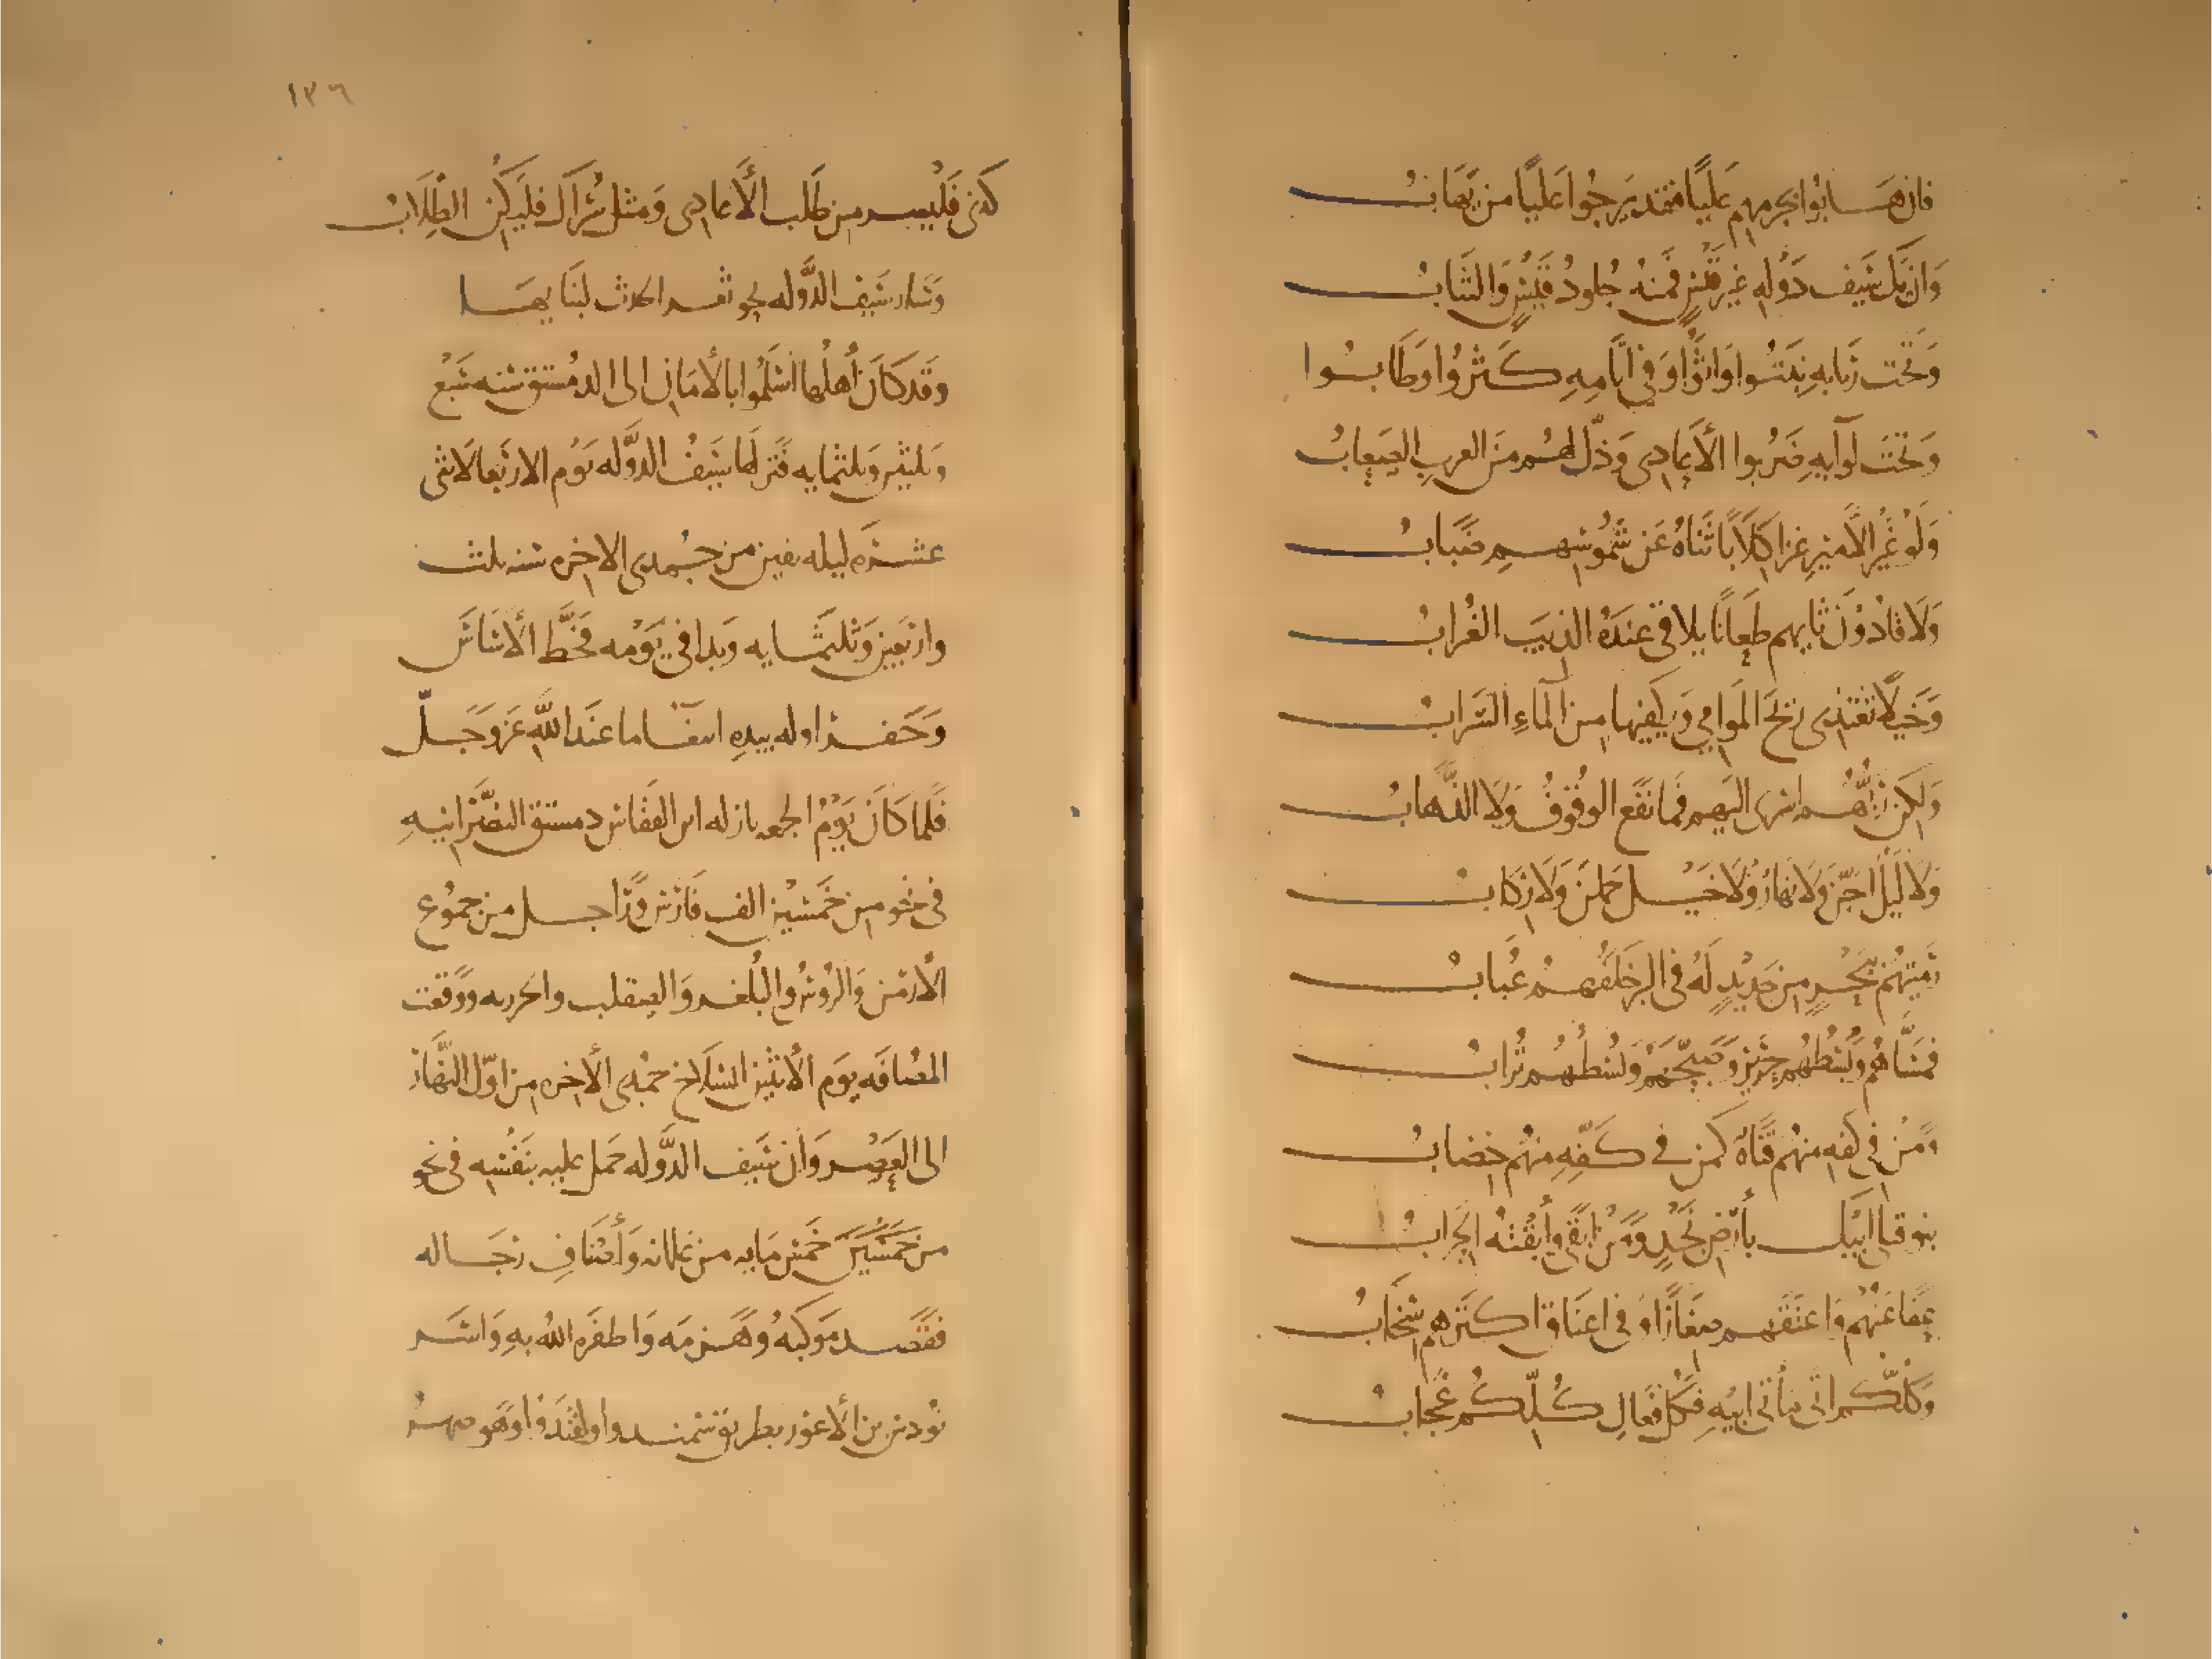 فان هَابُوا بجرمهم عَليًا فقد يَرجُوا عَليًا من يَهَابُ
وَان يَك سَيف دَوْلهِ غيرِ قَيْسٍ فمنهُ جُلودُ قَيْسٍ وَالثيَابُ
وَتحْت رَبَابهِ نبَتُوا وَاثّوْا وَفي ايَّامِهِ كَثرُوا وَطَابُوا
وَتحْتَ لوَآيهِ ضَرَبوا الأعَادِى وَذلّ لهُم منَ العربِ الصِعَابُ
وَلَوْ غَيْرُ الأمير غزا كِلَابًا ثنَاهُ عَن شمُوسِهمِ ضَبَابُ
وَلَاقا دُوْنَ ثايهم طعَانًا يلاقى عندَهُ الذيبَ الغُرابُ
وَخيلًا تغتذى ريْحَ المَوَامي وَيكفيْها من المآءِ السَرَابُ
وَلكن رَبُّهُم اسْرى اليَهِم فمَا نَفَع الوقُوفُ وَلَا الذَّهابُ
وَلا لَيْلٌ اجَنّ وَلَا نهَارٌ وَلَا خيْلٌ حَملنَ وَلَا رِكابُ
رَميْتهُمْ ببَحْرٍ من حَديْدٍ لَهُ فى البرِّ خلفَهُمُ عُبَابُ
فمَسَّاهُم وَبُسْطُهُم حَرِيرٌ وَصَبّحَهُمْ وَبُسْطُهُم تُرَابُ
وَمَنْ فى كفهِ منهُم قَنَاةٌ كمَن في كَفِّهِ منهُم خِضابُ
بنو قتلى ابيْك بأرْضِ نَجْدٍ وَمَنْ ابقى وَأبْقتْهُ الحِرَابُ
عفَا عَنْهُم وَاعتقَهُم صِغَارًا وَفى اعنَاق اكثرهم سِخَابُ
وَكلُّكُم اتى مَأتى ابيْهِ فكُلُّ فعَالِ كُلّكُم عُجَابُ
١٣٦
كذى فَليُسر من طَلب الأعادى وَمثل سُرَاكَ فليَكُن الطِلَابُ
وَسَار سَيف الدَّوله نحو ثغر الحدث لبنايهَا
وَقد كَانَ أهلُها اسْلَمُوا بالأمَان الى الدمُستق سَنه سَبْع
وَثلثين وَثلثمايه فنَزلهَا سَيفُ الدَّوله يَوم الاربَعا لاثنَى
عشرَه ليله بقين من جُمدى الاخره سنه ثلث
واربَعين وَثلثمَايه وَبدا في يَوْمه فخَّط الأسَاسَ
وَحَفر اوله بيدهِ ابتغَا ما عنَد اللهِ عَزوَجَلّ
فَلما كَانَ يَوْمُ الجمعه نازله ابن الفقاس دمستق النصْرَانيهِ
فى نحوٍ من خَمسْين الف فَارس وَرَاجل من جمُوع
الأرْمن وَالرُوس وَالبُلغر وَالصقلب والخرريه ووَقعت
المصَافه يوَم الاثنين انسلَاخ جمُدى الأخره من اوّل النَّهارْ
الى العَصْر وَان سَيف الدَّوله حَمل عليه بنَفْسِهِ فى نحو
من خَمْس مَايه من غلمانه وَأصْنَافِ رجَاله
فقصَد مَوكبَهُ وَهَزمَه وَاظفَره اللهُ بهِ وَاسَر
تُودس بن الأعوَر بطريق سَمندوا ولقندُوا وَهو صهرُ